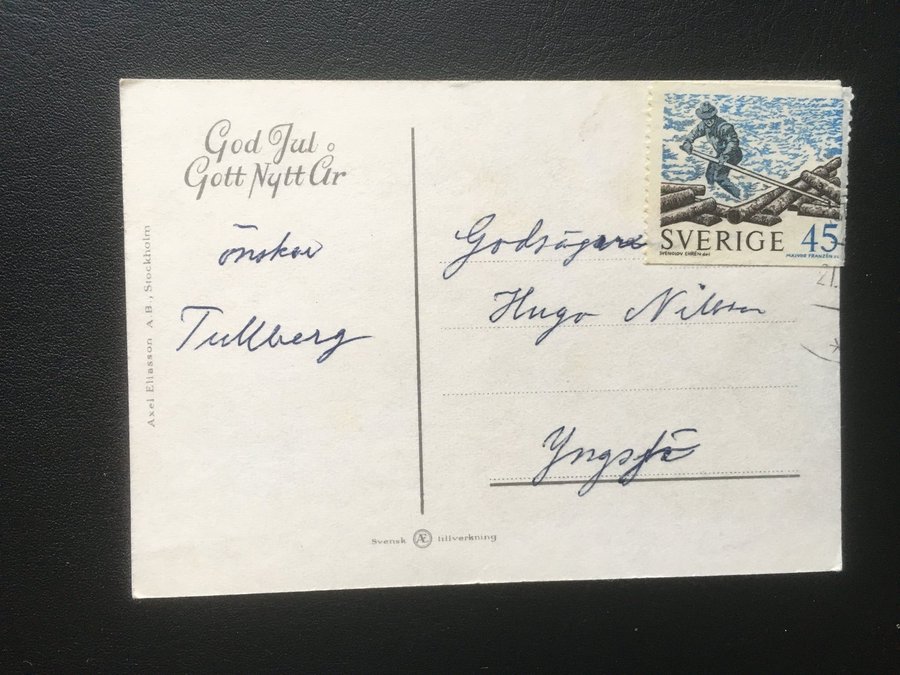 God Jul
Gott Nytt År
önskar
Tullberg
Axel Eliasson A.B., Stockholm
Godsägare
Hugo Nilsson
Yngsjö
SVERIGE 45
SVENOLOV EHRÉN del
MAJVOR FRANZÉN sc
21.
Svensk Æ tillverkning